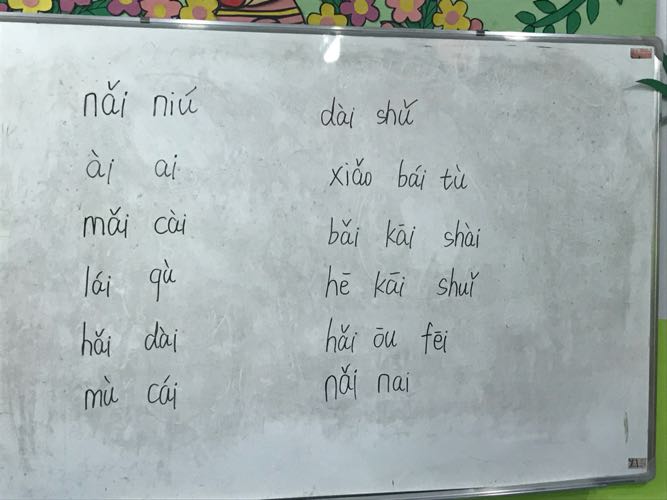 nǎi niú
ài ai
mǎi cài
lái qù
hǎi dài
mù cái
dài shǔ
xiǎo bái tù
bǎi kāi shài
hē kāi shuǐ
hǎi ōu fēi
nǎi nai